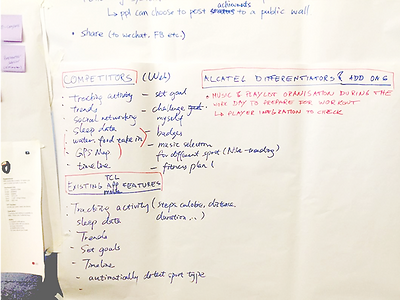 ↳ppl can choose to post achievmts to a public wall
• Share (to wechat, FB etc.)
COMPETITORS (Wel)
• Tracking activity
• trends
• Social networking
• Sleep data
• water, food take in
• GPS Map
• timeline
– set goal
– challenge myself
– badges
– music selection
for different sport (Nike-running)
– fitness plan (
ALCATEL DIFFERENTIATORS & ADD ONS
• MUSIC & PLAYLIST ORGANISATION DURING THE
WORK DAY TO PREPARE FOR WORKOUT
↳ PLAYER INTEGRATION TO CHECK
TCL
EXISTING APP FEATURES
• Tracking activity (steps, calories, distance,
duration, ..)
- sleep data
- Trends
- Set goals
- Timeline
- automatically detect sport type
-